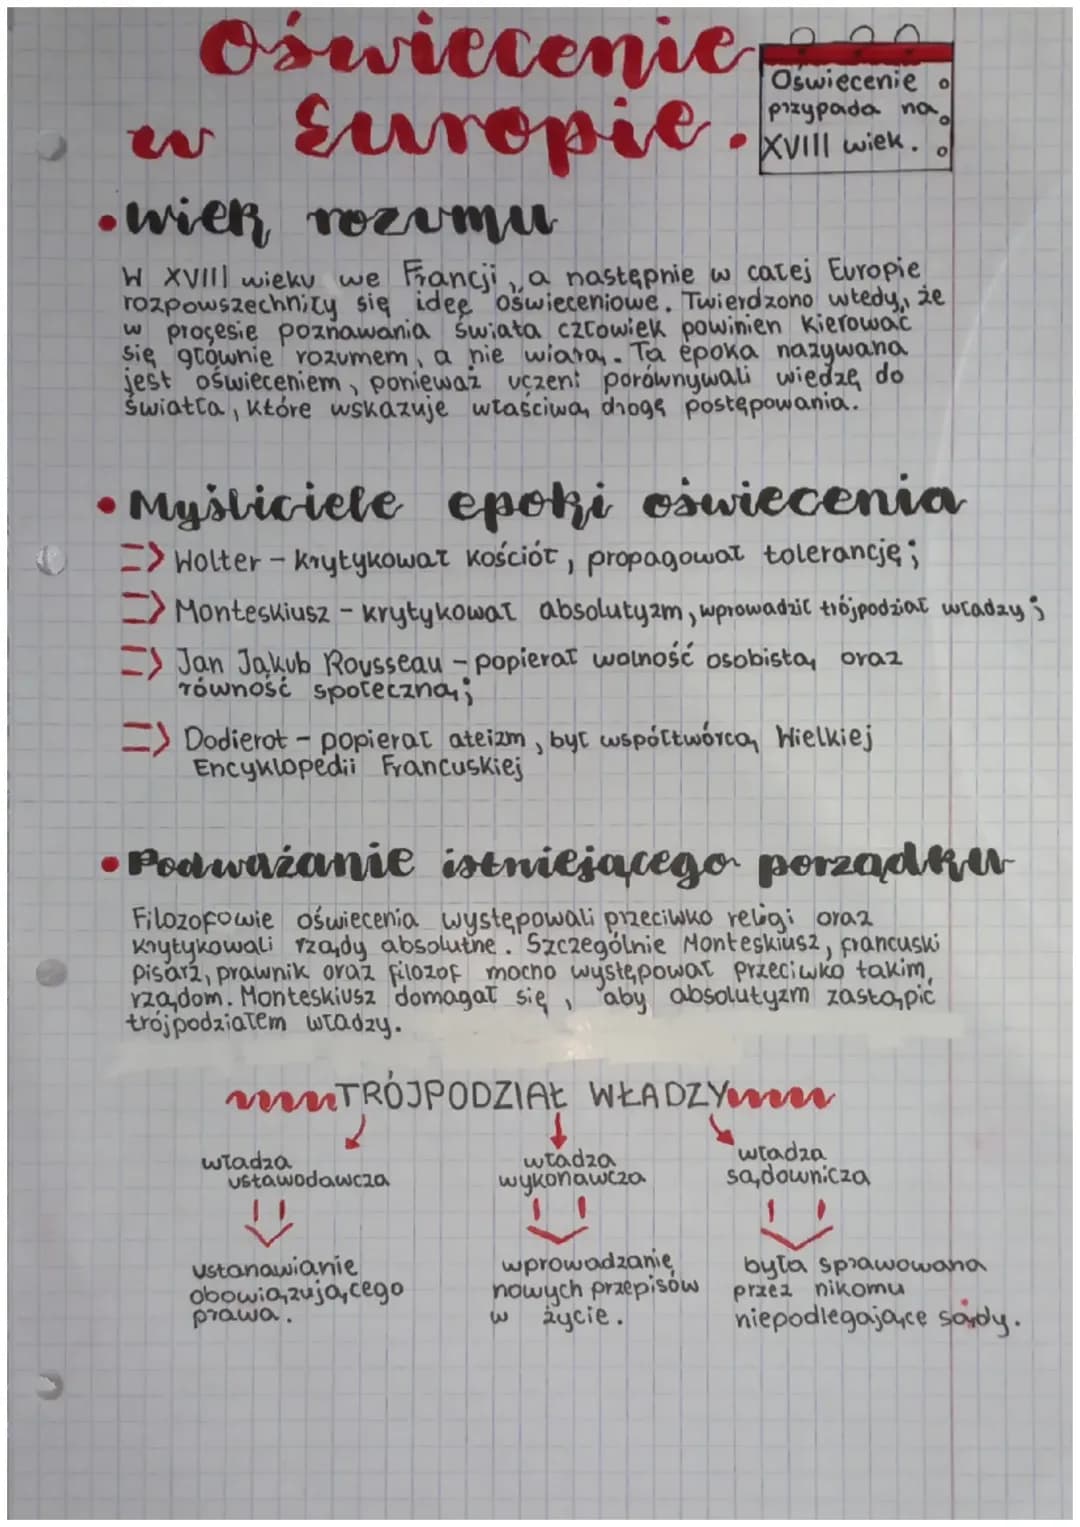 Oświecenie
w Europie.
Oświecenie
przypada na
XVIII wiek.
•wiek rozumu
W XVIII wieku we Francji, a następnie w całej Europie
rozpowszechniły się idee oświeceniowe. Twierdzono wtedy, że
w procesie poznawania świata człowiek powinien kierować
się głównie rozumem, a nie wiarą. Ta epoka nazywana
jest oświeceniem, ponieważ uczeni porównywali wiedzę do
światła, które wskazuje właściwą drogę postępowania.
•Myśliciele epoki oświecenia
=> Wolter - krytykował kościół, propagował tolerancję;
=> Monteskiusz - krytykował absolutyzm, wprowadził trójpodział władzy;
=> Jan Jakub Rousseau - popierał wolność osobistą oraz
równość społeczną;
=> Dodierot - popierał ateizm, był współtwórcą Wielkiej
Encyklopedii Francuskiej
•Podważanie istniejącego porządku
Filozofowie oświecenia występowali przeciwko religi oraz
krytykowali rządy absolutne. Szczególnie Monteskiusz, francuski
pisarz, prawnik oraz filozof mocno występował przeciwko takim
rządom. Monteskiusz domagał się, aby absolutyzm zastąpić
trójpodziałem władzy.
TRÓJPODZIAŁ WŁADZY
władza
ustawodawcza
władza
wykonawcza
władza
sądownicza
ustanawianie
obowiązującego
prawa.
wprowadzanie
nowych przepisów
w życie.
była sprawowana
przez nikomu
niepodlegające sądy.